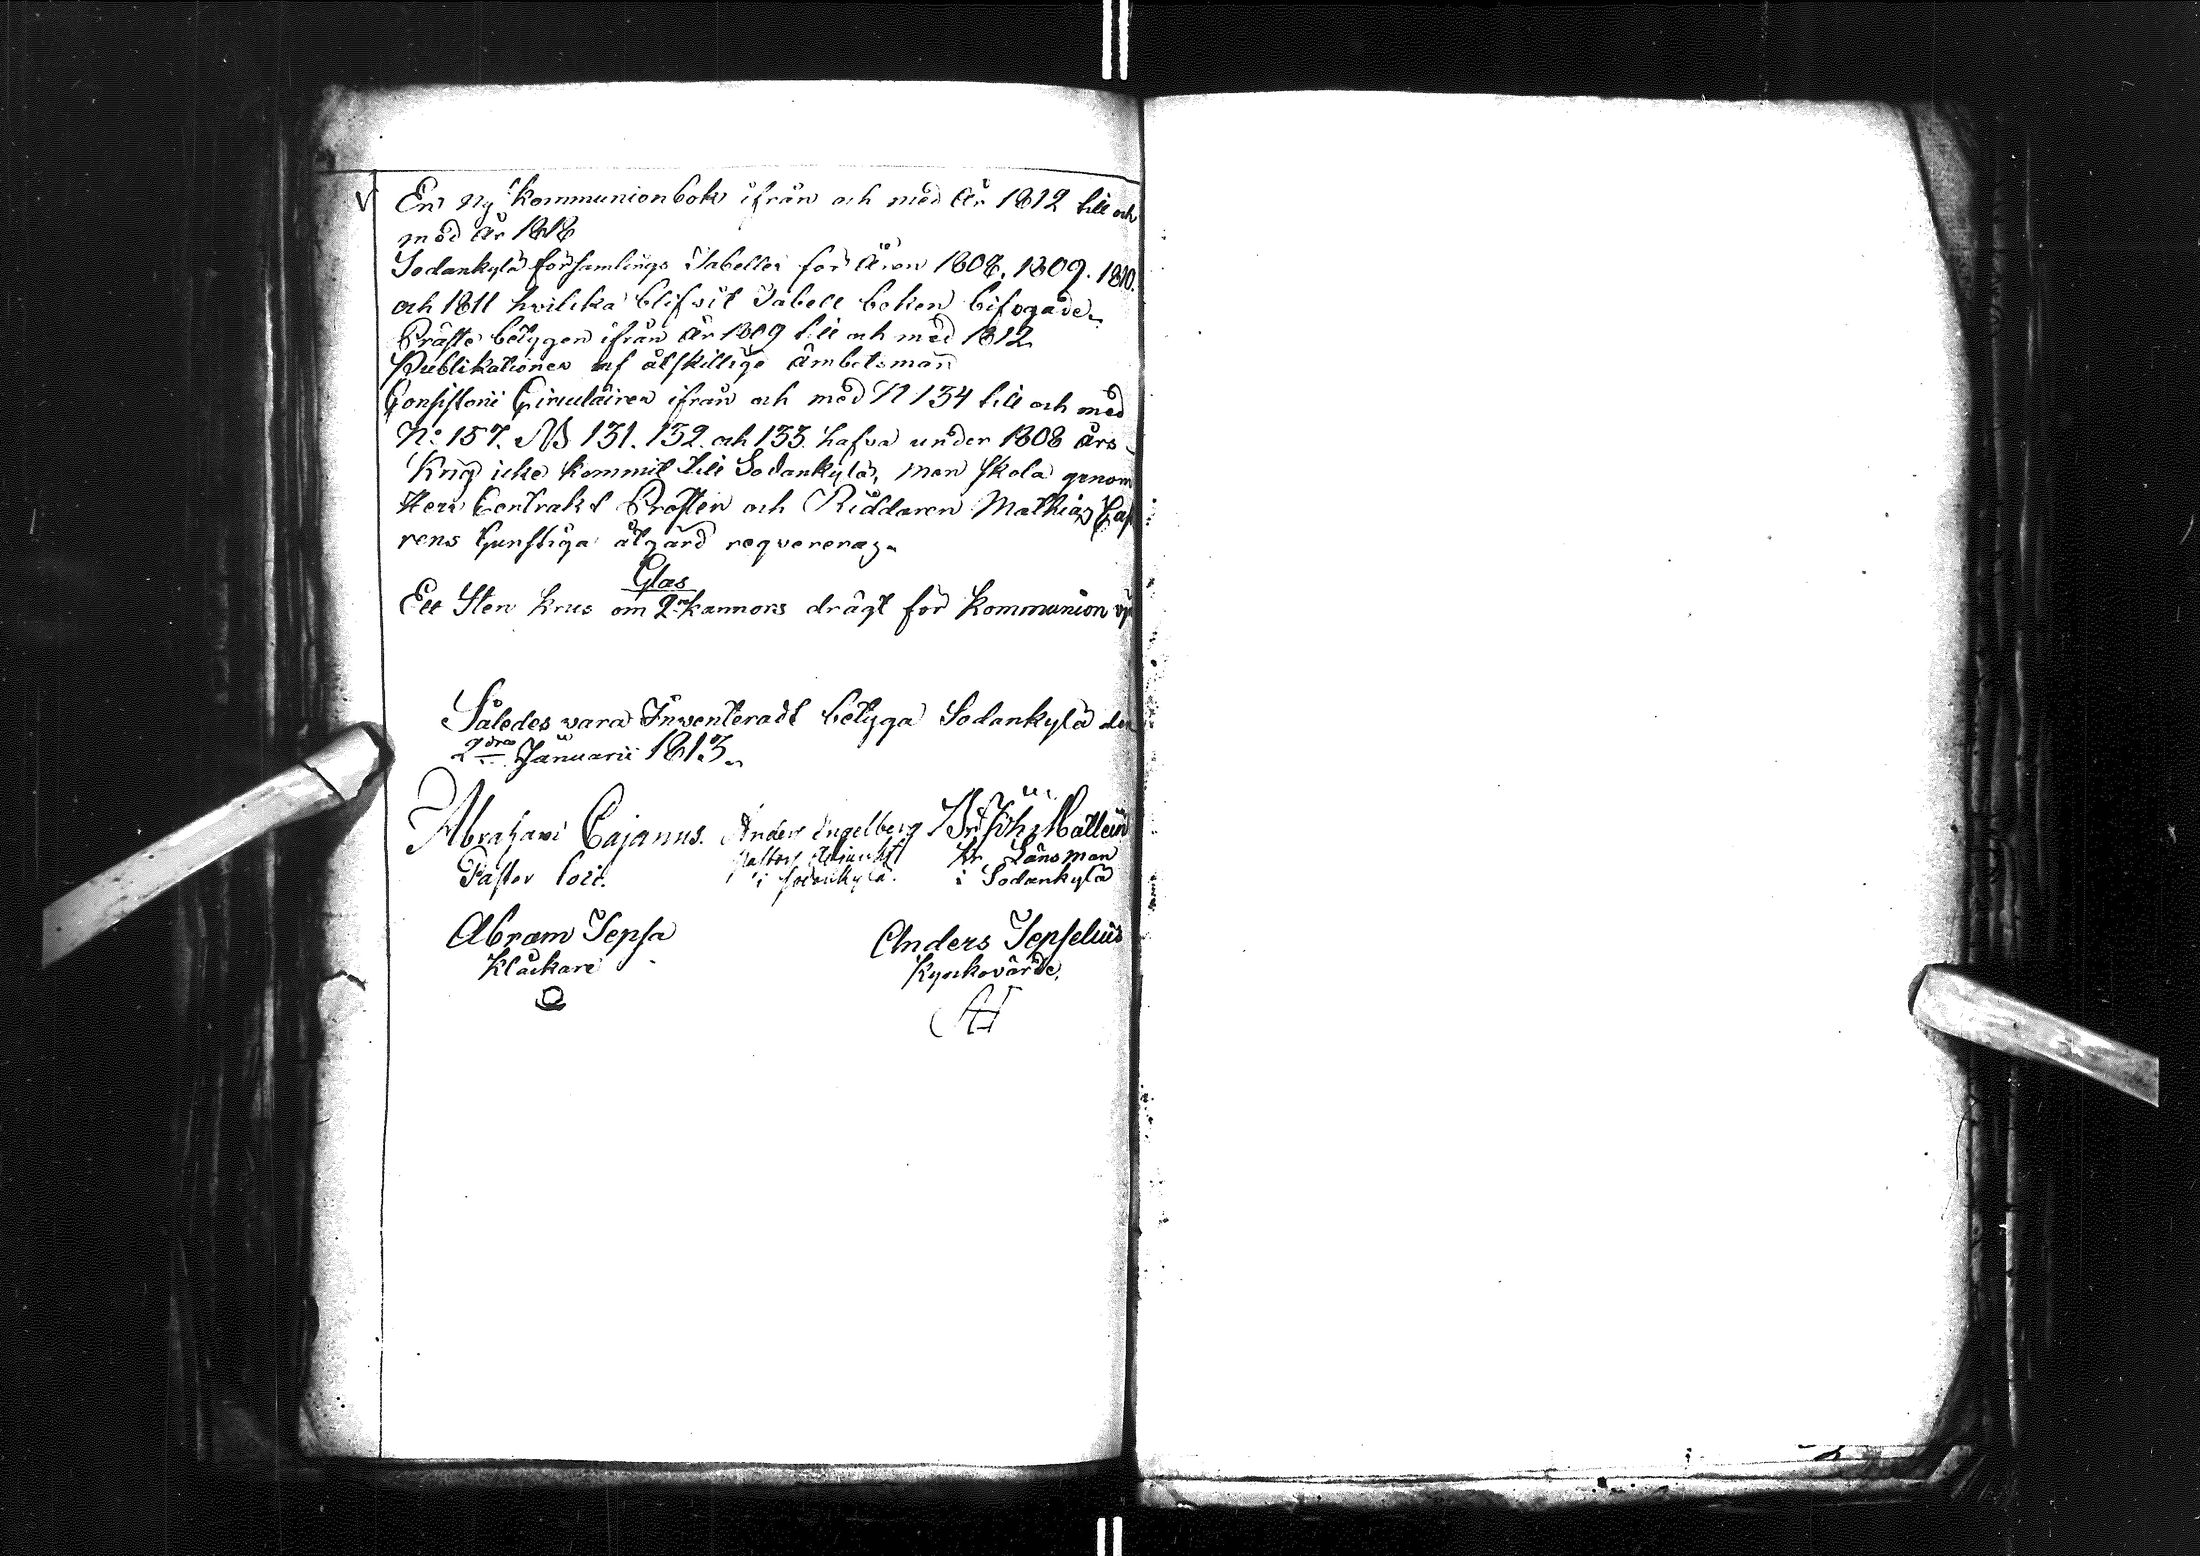 V En ny Kommunionbok ifrån och med år 1812 till och
med år 1818
Sodankylä församlings Tabeller för åren 1808. 1809. 1810.
och 1811 hvilka blifvit Tabell boken bifogade.
Präste betygen ifrån år 1809 till och med 1812
Publikationer af åtskillige Ämbetsmän
Consistorii Circulairer ifrån och med N 134 till och med
No 157. NB 131. 132. och 133. hafva under 1808 års
Krig icke kommit till Sodankylä, men skola genom
Herr Contrakt Prosten och Riddaren Mathias Cast
rens Gunstiga åtgärd reqvereras.
Glas
Ett Sten krus om 2ne kannors drägt för Kommunion
Således vara Inventeradt betyga Sodankylä den
2dra Januarii 1813.
Abraham Cajanus. Anders Engelberg Mattein
Pastor loci. Pastors Adjunct Kr Länsman
i Sodankylä. i Sodankylä
Abram Jepsa Anders Jepselius
Klåckare Kyrkovärde.
AJ